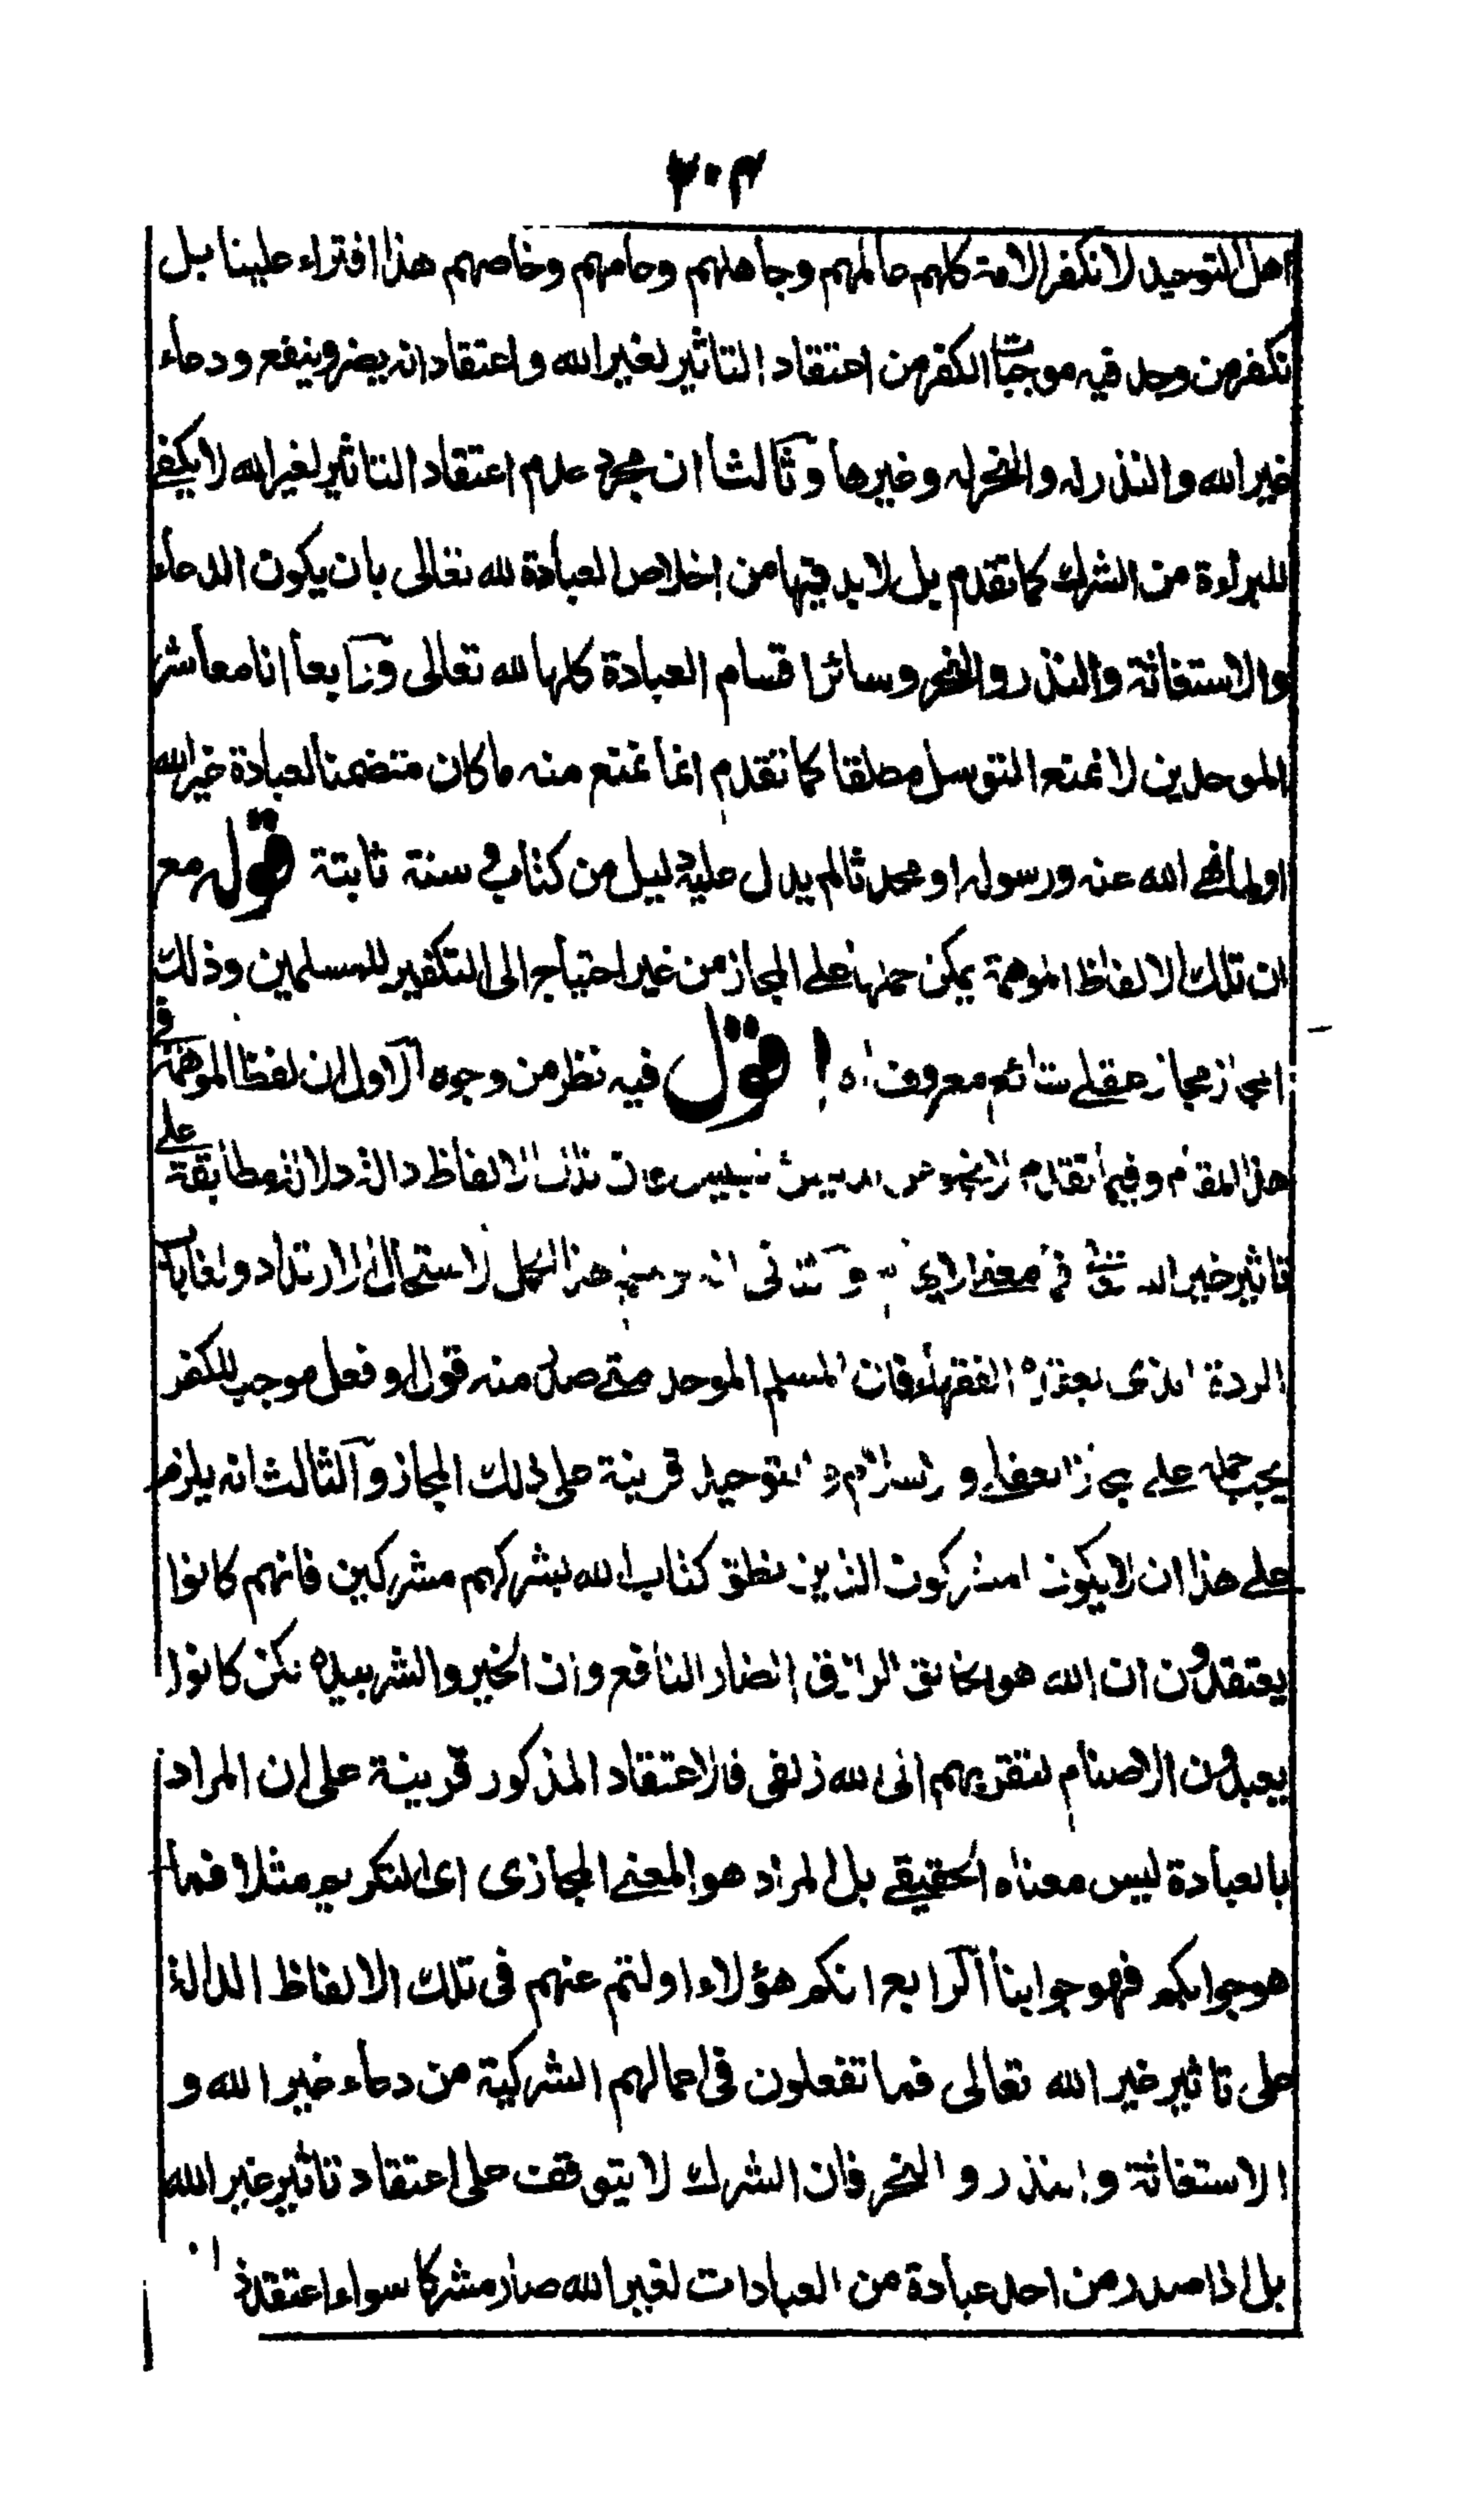 ٢٠٣
اهل التوحيد لا نكفر الامة كلهم عالمهم وجاهلهم وعامهم وخاصهم هذا افتراء علينا بل
نكفر من وجد فيه موجبات الكفر من اعتقاد التاثير لغير الله واعتقاد انه يضر وينفع ودعاء
غير الله والنذر له والنحر له وغيرها وثالثا ان مجرد عدم اعتقاد التاثير لغير الله لا يكفي
للبراءة من الشرك كما تقدم بل لا بد فيها من اخلاص العبادة لله تعالى بان يكون الدعاء
والاستغاثة والنذر والنحر وسائر اقسام العبادة كلها لله تعالى ورابعا انا معاشر
الموحدين لا نمنع التوسل مطلقا كما تقدم انما نمنع منه ما كان متضمنا لعبادة غير الله
او لما نهى الله عنه ورسوله او محدثا لم يدل عليه دليل من كتاب وسنة ثابتة قوله مع
ان تلك الالفاظ الموهمة يمكن حملها على المجاز من غير احتياج الى التكفير للمسلمين وذلك
المجاز مجاز عقلي شائع معروف اه اقول فيه نظر من وجوه الاول ان لفظ الموهمة في
هذا المقام وفيما تقدم الالفاظ دالة دلالة مطابقة على
تاثير غير الله في هذا الحمل لاستحال الارتداد ولغا باب
الردة الذي يعقده الفقهاء فان المسلم الموحد متى صدر منه قول او فعل موجب للكفر
يجب حمله على مجاز العقلي والاسلام والتوحيد قرينة على ذلك المجاز والثالث انه يلزم
على هذا ان لا يكون المشركون الذين نطق كتاب الله بشركهم مشركين فانهم كانوا
يعتقدون ان الله هو الخالق الرازق الضار النافع وان الخير والشر بيده لكن كانوا
يعبدون الاصنام لتقربهم الى الله زلفى فالاعتقاد المذكور قرينة على ان المراد
بالعبادة ليس معناه الحقيقي بل المراد هو المعنى المجازي اي التكريم مثلا فما
هو جوابكم فهو جوابنا الرابع انكم هؤلاء اولتم عنهم في تلك الالفاظ الدالة
على تاثير غير الله تعالى فما تفعلون في اعمالهم الشركية من دعاء غير الله و
الاستغاثة والنذر والنحر فان الشرك لا يتوقف على اعتقاد تاثير غير الله
بل اذا صدر من احد عبادة من العبادات لغير الله صار مشركا سواء اعتقد